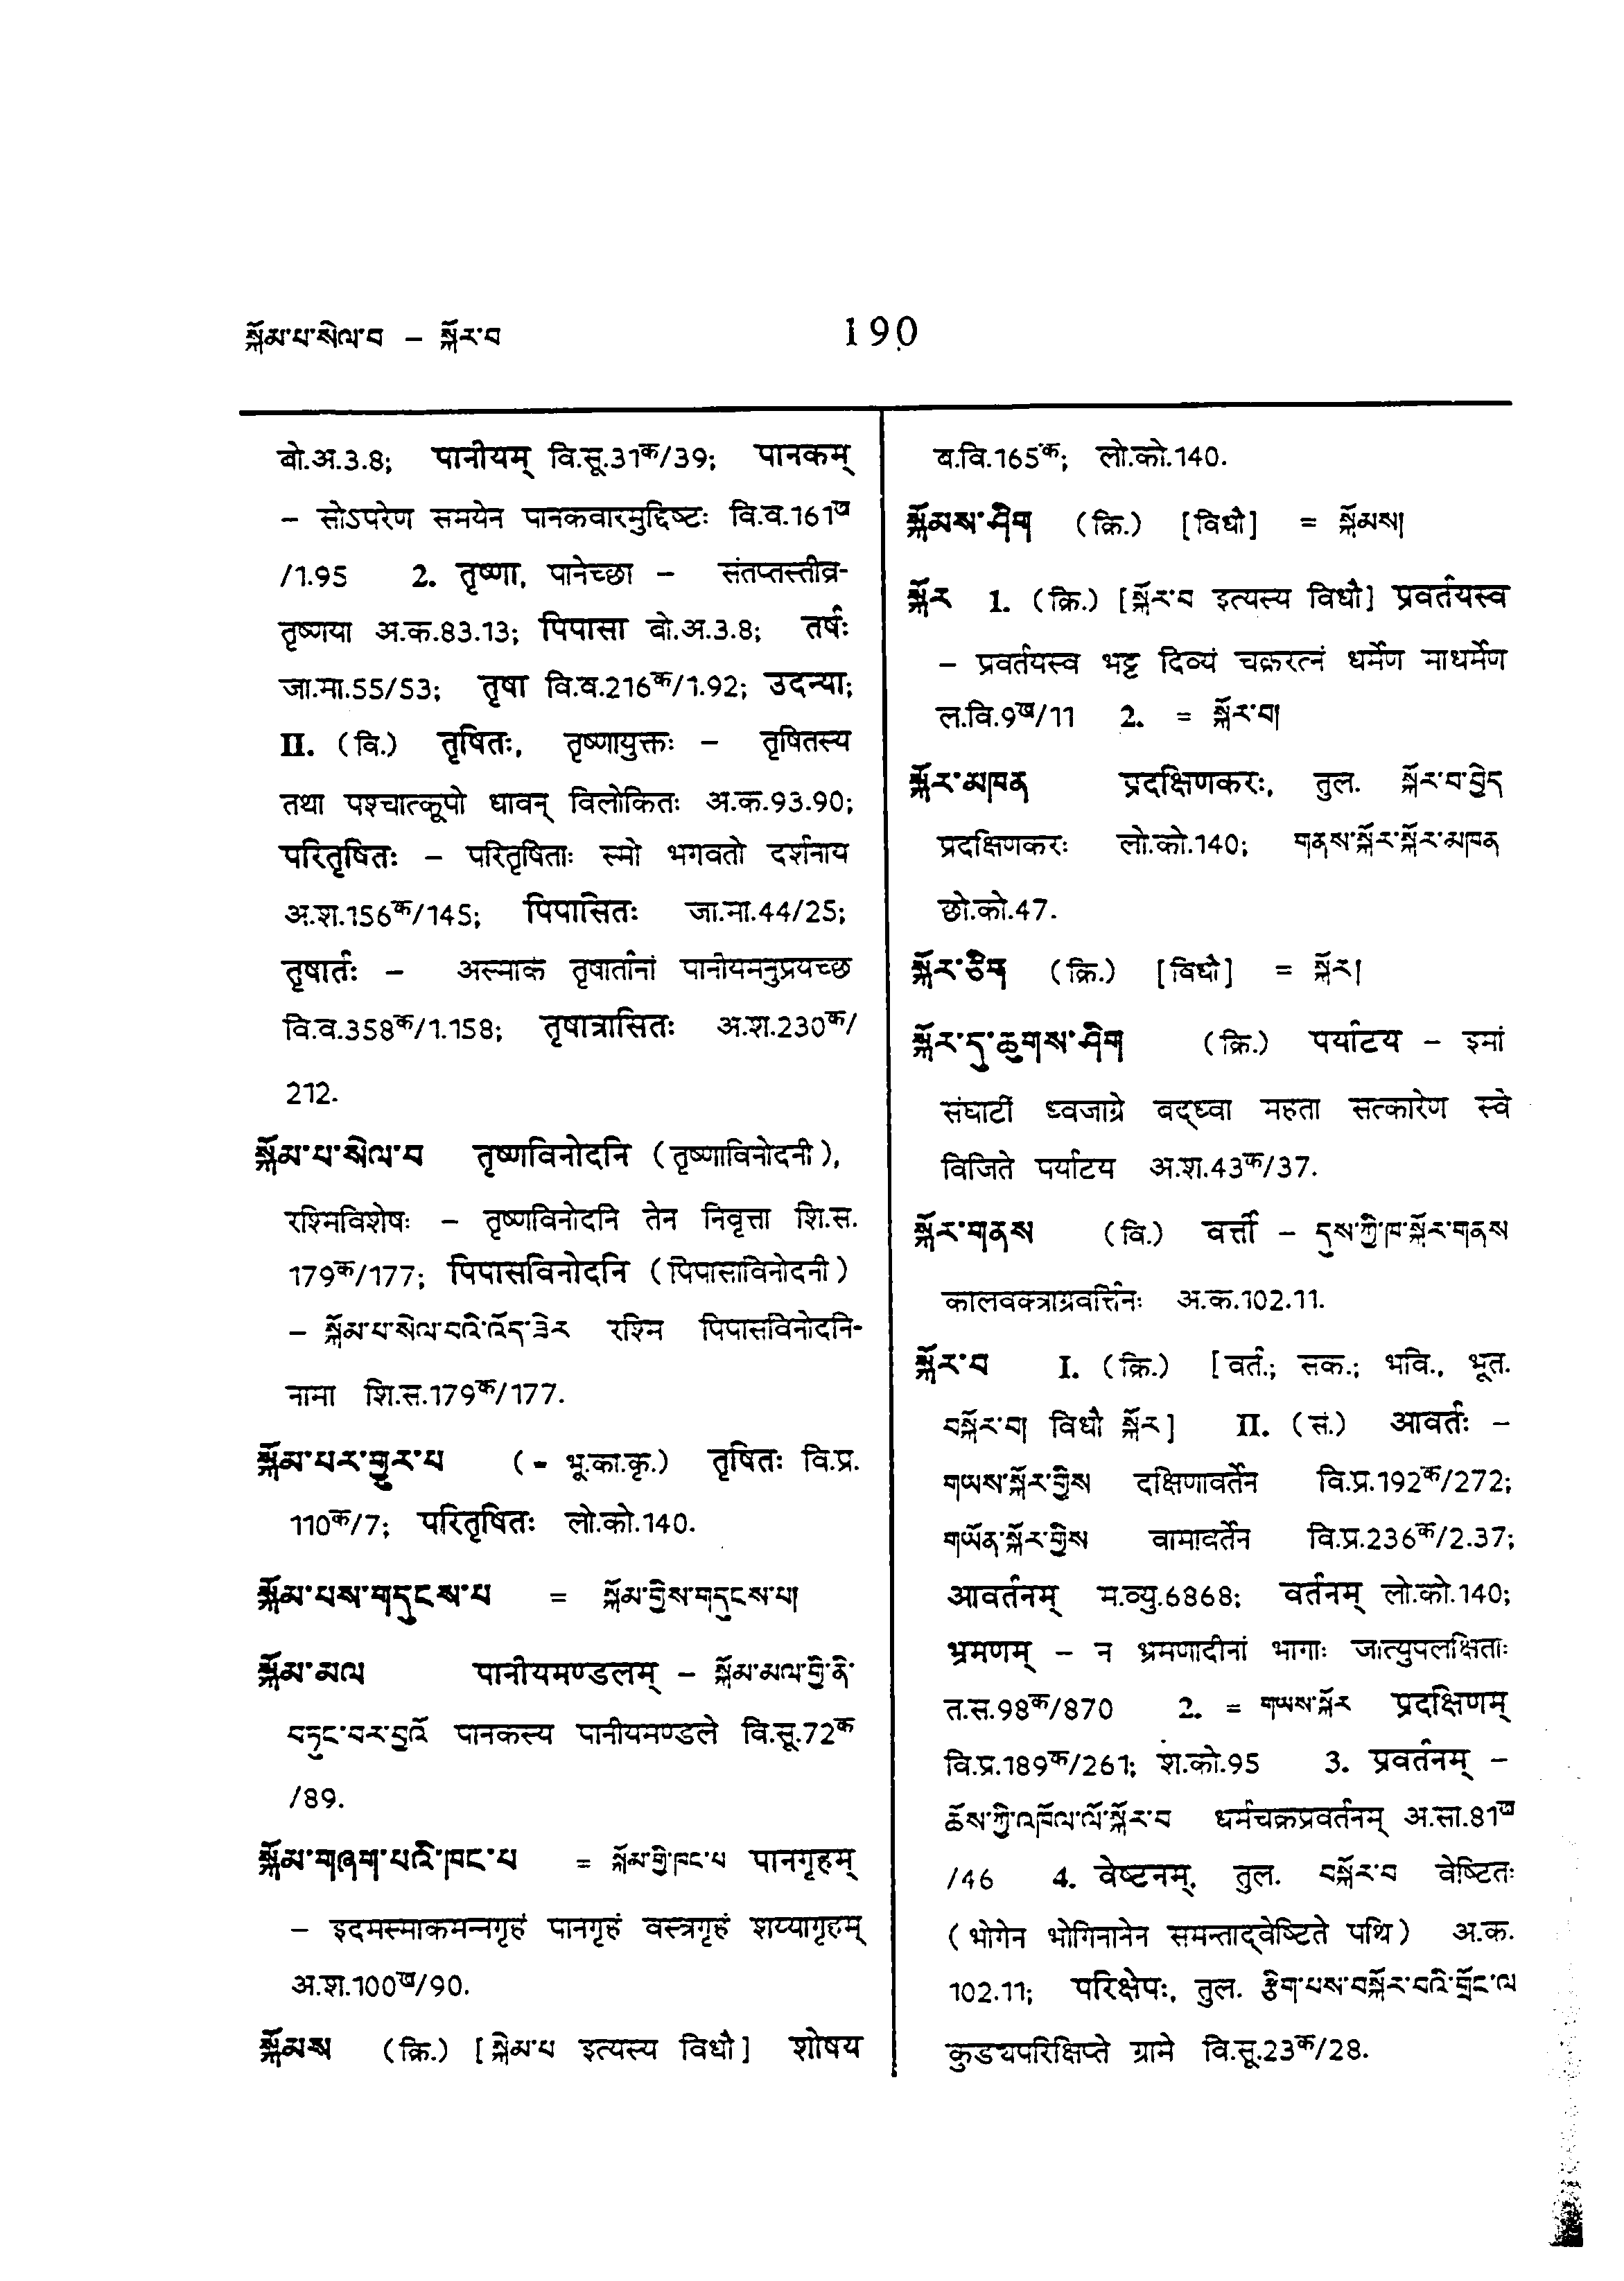 སྐོམ་པ་སེལ་བ – སྐོར་བ
190
बो.अ.3.8; पानीयम् वि.सू.31क/39; पानकम्
– सोऽपरेण समयेन पानकवारमुद्दिष्टः वि.व.161ख
/1.95 2. तृष्णा, पानेच्छा – संतप्तस्तीव्र-
तृष्णया अ.क.83.13; पिपासा बो.अ.3.8; तर्षः
जा.मा.55/53; तृषा वि.व.216क/1.92; उदन्या;
II. (वि.) तृषितः, तृष्णायुक्तः – तृषितस्य
तथा पश्चात्कूपो धावन् विलोकितः अ.क.93.90;
परितृषितः – परितृषिताः स्मो भगवतो दर्शनाय
अ.श.156क/145; पिपासितः जा.मा.44/25;
तृषार्तः – अस्माकं तृषार्तानां पानीयमनुप्रयच्छ
वि.व.358क/1.158; तृषात्रासितः अ.श.230क/
212.
སྐོམ་པ་སེལ་བ तृष्णविनोदनि (तृष्णाविनोदनी),
रश्मिविशेषः – तृष्णविनोदनि तेन निवृत्ता शि.स.
179क/177; पिपासविनोदनि (पिपासाविनोदनी)
– སྐོམ་པ་སེལ་བའི་འོད་ཟེར रश्मि पिपासविनोदनि-
नामा शि.स.179क/177.
སྐོམ་པར་གྱུར་པ (- भू.का.कृ.) तृषितः वि.प्र.
110क/7; परितृषितः लो.को.140.
སྐོམ་པས་གདུངས་པ = སྐོམ་གྱིས་གདུངས་པ།
སྐོམ་མལ पानीयमण्डलम् – སྐོམ་མལ་གྱི་ནི་
བཏུང་བར་བྱའོ पानकस्य पानीयमण्डले वि.सू.72क
/89.
སྐོམ་གཞག་པའི་ཁང་པ = སྐོམ་གྱི་ཁང་པ पानगृहम्
– इदमस्माकमन्नगृहं पानगृहं वस्त्रगृहं शय्यागृहम्
अ.श.100ख/90.
སྐོམས (क्रि.) [སྐེམ་པ इत्यस्य विधौ] शोषय
ब.वि.165क; लो.को.140.
སྐོམས་ཤིག (क्रि.) [विधौ] = སྐོམས།
སྐོར 1. (क्रि.) [སྐོར་བ इत्यस्य विधौ] प्रवर्तयस्व
– प्रवर्तयस्व भट्ट दिव्यं चक्ररत्नं धर्मेण माधर्मेण
ल.वि.9ख/11 2. = སྐོར་བ།
སྐོར་མཁན प्रदक्षिणकरः, तुल. སྐོར་བ་བྱེད
प्रदक्षिणकरः लो.को.140; གནས་སྐོར་སྐོར་མཁན
छो.को.47.
སྐོར་ཅིག (क्रि.) [विधौ] = སྐོར།
སྐོར་དུ་ཆུགས་ཤིག (क्रि.) पर्याटय – इमां
संघाटीं ध्वजाग्रे बद्ध्वा महता सत्कारेण स्वे
विजिते पर्याटय अ.श.43क/37.
སྐོར་གནས (वि.) वर्त्ती – དུས་ཀྱི་ཁ་སྐོར་གནས
कालवक्त्राग्रवर्त्तिनः अ.क.102.11.
སྐོར་བ I. (क्रि.) [वर्त.; सक.; भवि., भूत.
བསྐོར་བ། विधौ སྐོར] II. (सं.) आवर्तः –
གཡས་སྐོར་གྱིས दक्षिणावर्तेन वि.प्र.192क/272;
གཡོན་སྐོར་གྱིས वामावर्तेन वि.प्र.236क/2.37;
आवर्तनम् म.व्यु.6868; वर्तनम् लो.को.140;
भ्रमणम् – न भ्रमणादीनां भागाः जात्युपलक्षिताः
त.स.98क/870 2. = གཡས་སྐོར प्रदक्षिणम्
वि.प्र.189क/261; श.को.95 3. प्रवर्तनम् –
ཆོས་ཀྱི་འཁོལ་ལོ་སྐོར་བ धर्मचक्रप्रवर्तनम् अ.सा.81ख
/46 4. वेष्टनम्, तुल. བསྐོར་བ वेष्टितः
(भोगेन भोगिनानेन समन्ताद्वेष्टिते पथि) अ.क.
102.11; परिक्षेपः, तुल. རྩིག་པས་བསྐོར་བའི་གྲོང་ལ
कुड्यपरिक्षिप्ते ग्रामे वि.सू.23क/28.